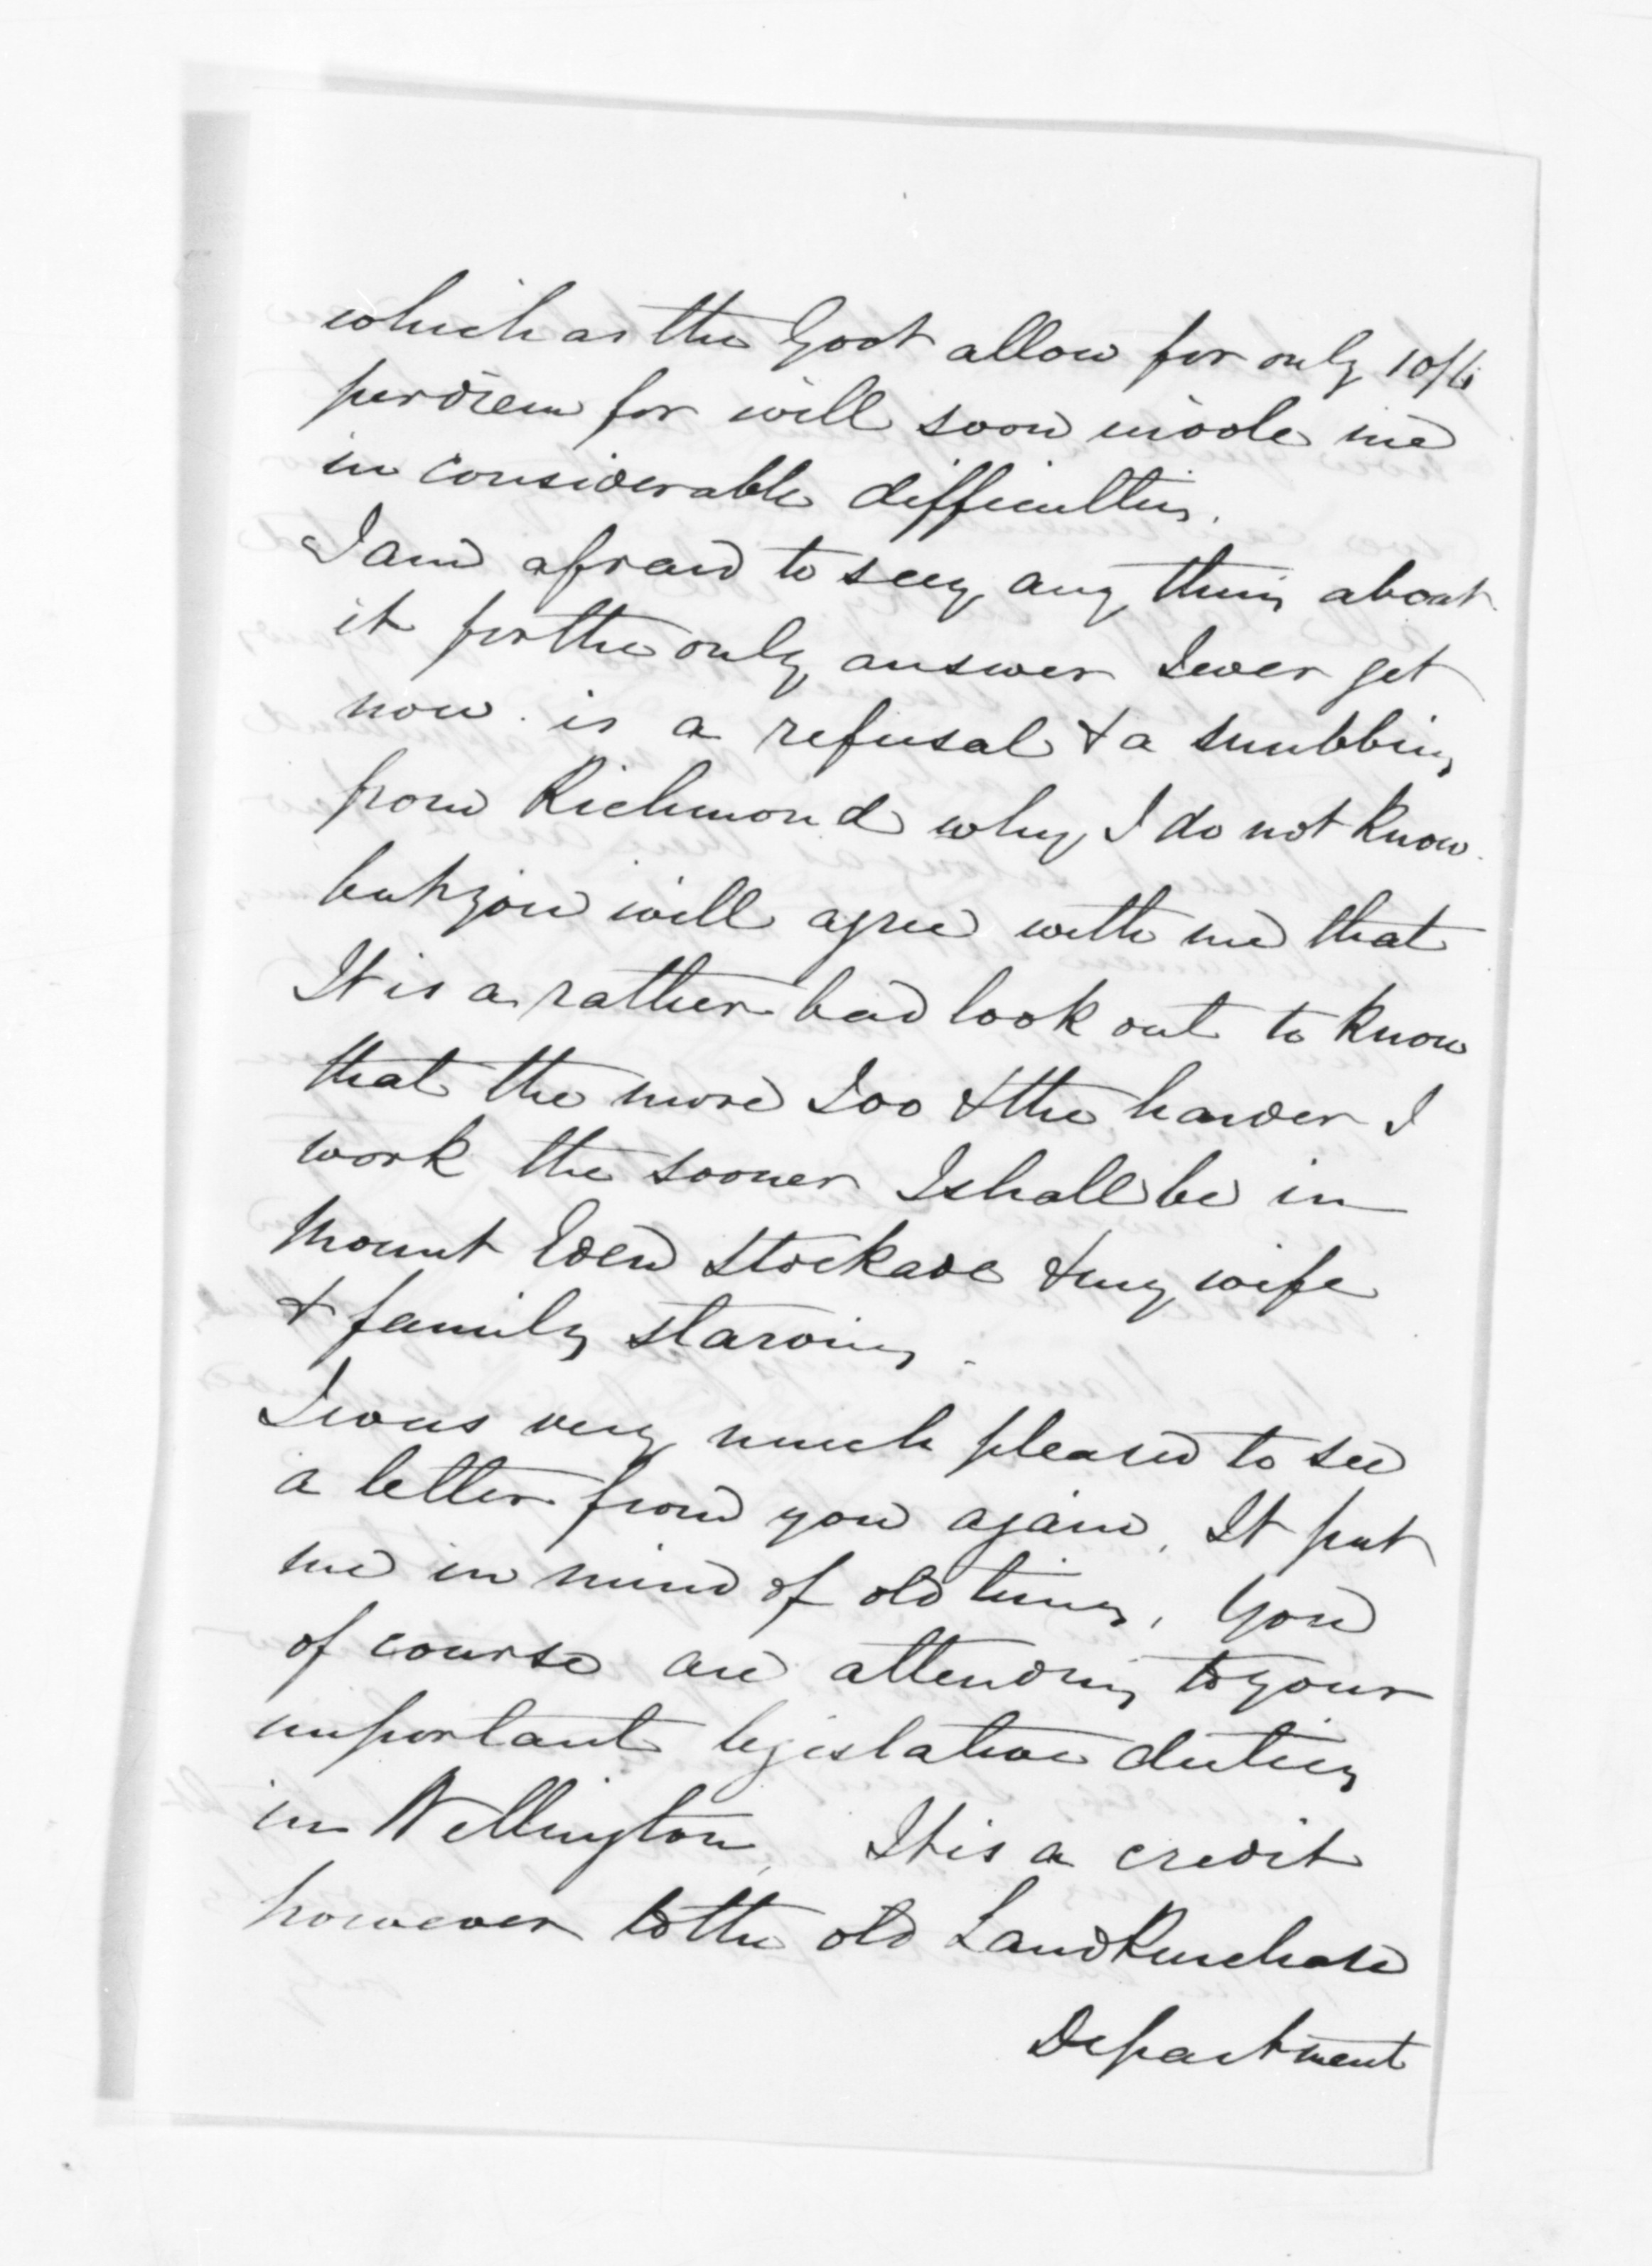 which as the Govt allow for only 10/6
per diem for will soon involve me
in considerable difficulties.
I am afraid to say any thing about
it for the only answer I ever get
now is a refusal & a snubbing
from Richmond why I do not know
but you will agree with me that
It is a rather bad look out to know
that the more I do & the harder I
work the sooner I shall be in
Mount Eden Stockade & my wife
& family starving.
I was very much pleased to see
a letter from you again. It put
me in mind of old times. You
of course are attending to your
important legislative duties
in Wellington. It is a credit
however to the old Land Purchase
Department